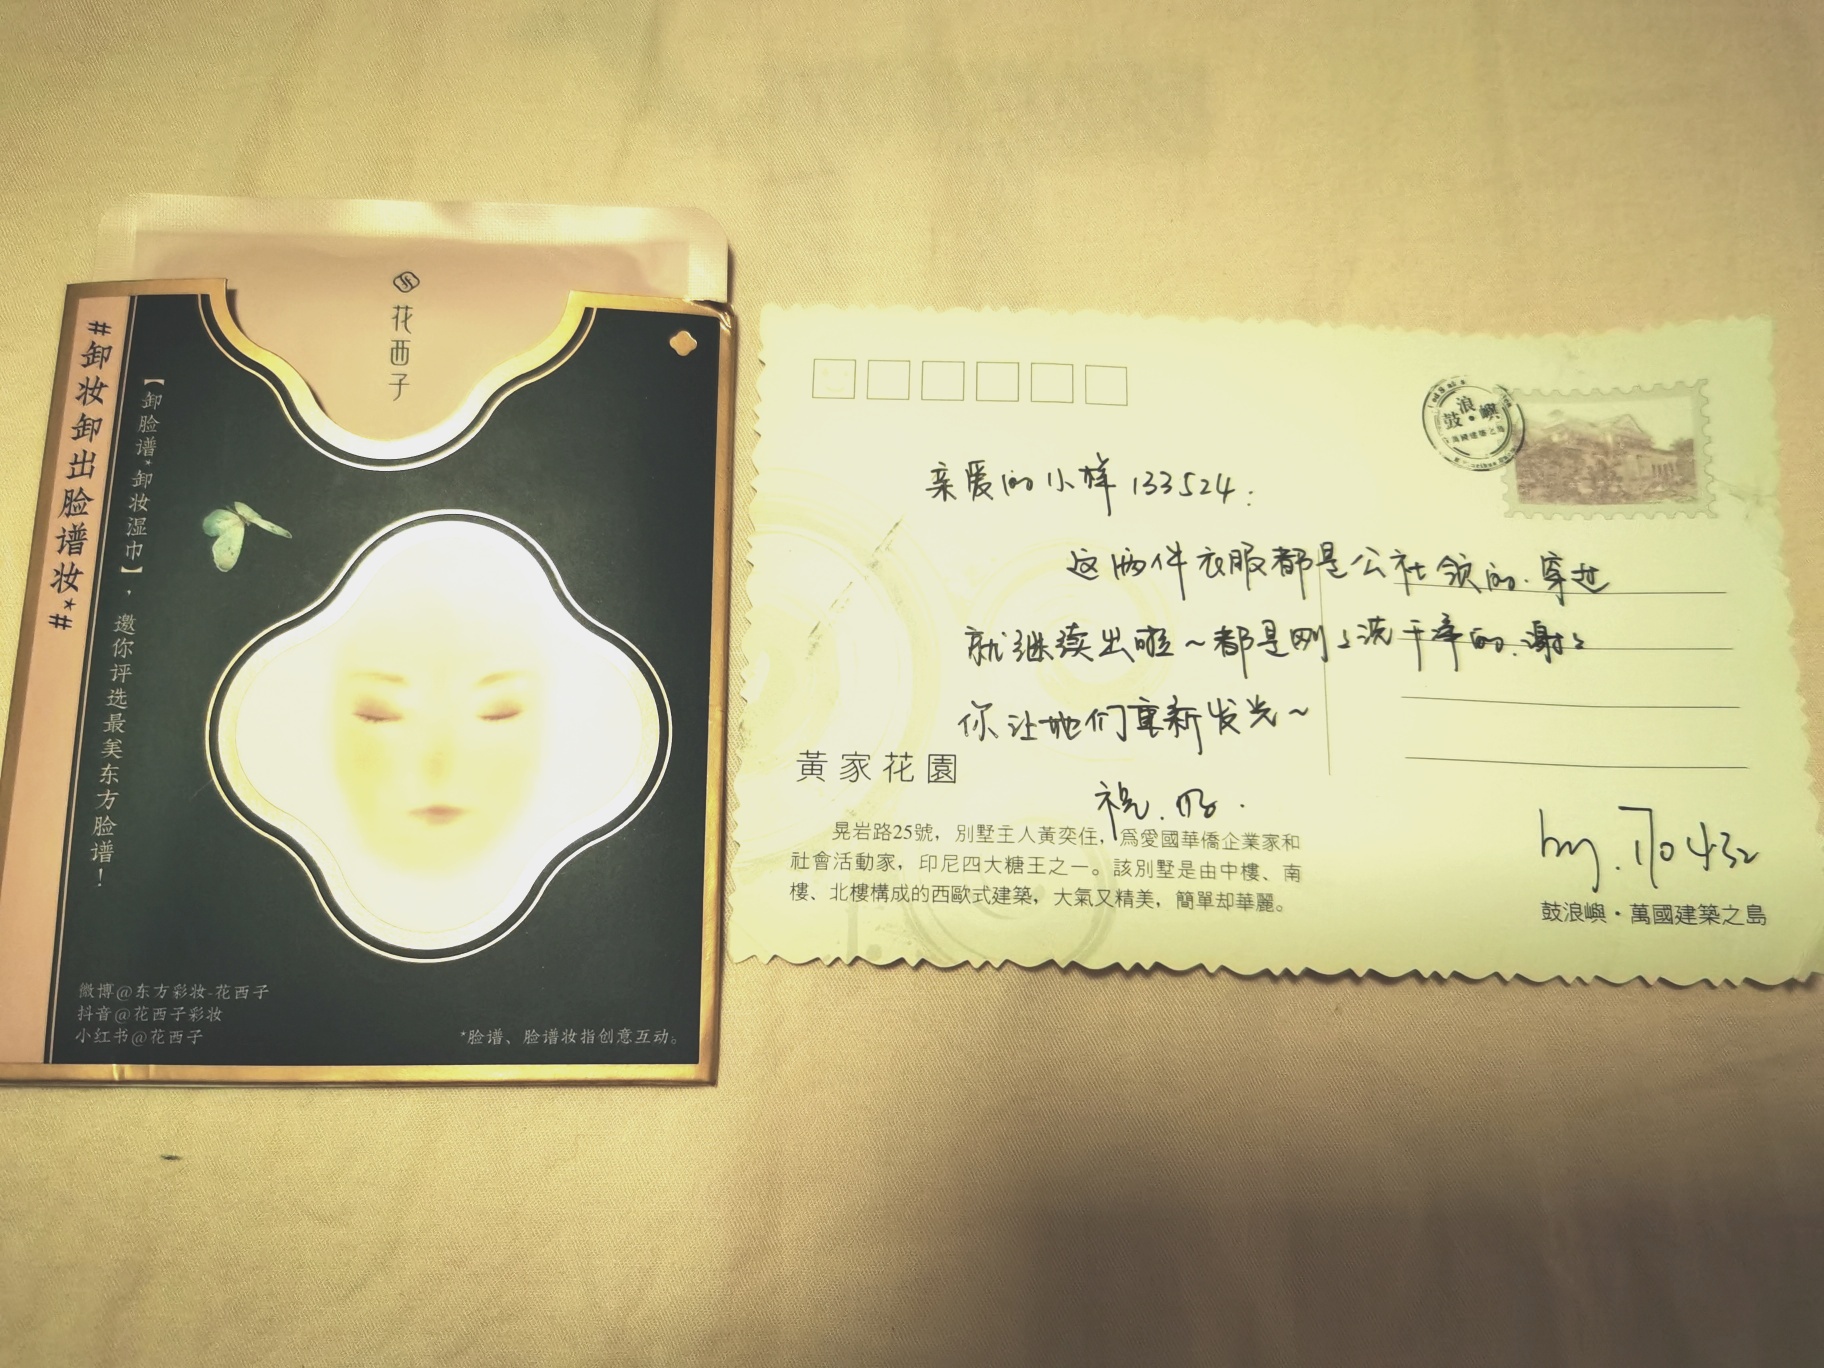 花西子
#卸妆卸出脸谱妆*#
【卸脸谱*卸妆湿巾】，邀你评选最美东方脸谱！
微博@东方彩妆-花西子
抖音@花西子彩妆
小红书@花西子
*脸谱、脸谱妆指创意互动。
鼓浪嶼
萬國建築之島
亲爱的小样133524：
这两件衣服都是公社领的.穿过
就继续出啦~都是刚刚洗干净的.谢谢
你让她们重新发光~
祝.好.
黃家花園
晃岩路25號，別墅主人黃奕住，爲愛國華僑企業家和
社會活動家，印尼四大糖王之一。該別墅是由中樓、南
樓、北樓構成的西歐式建築，大氣又精美，簡單却華麗。
by.
鼓浪嶼·萬國建築之島